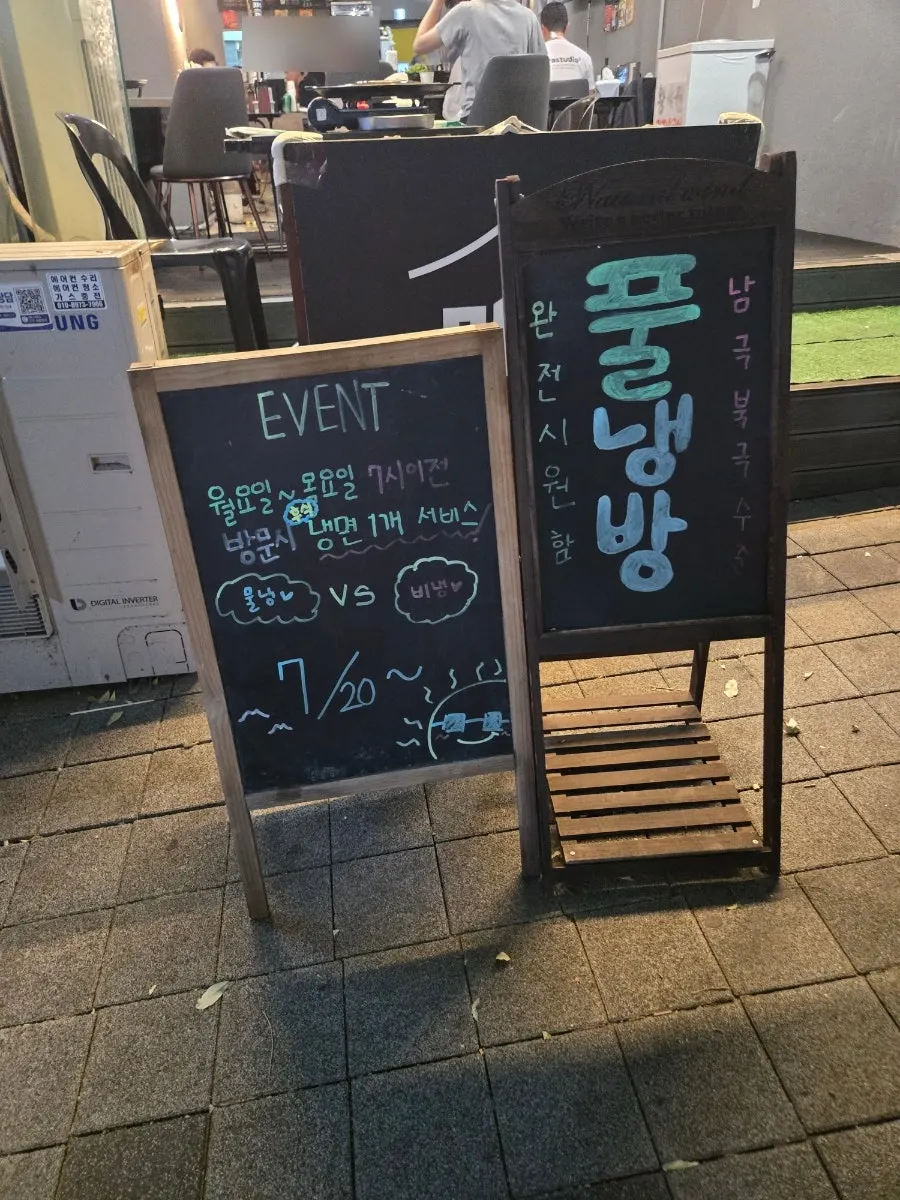 EVENT
월요일 ~ 목요일 7시이전
방문시 후식 냉면 1개 서비스
물냉♥ VS 비냉♥
7/20 ~
완전시원함
풀냉방
남극북극수준
Natural wind
에어컨 수리
에어컨 청소
가스 충전
UNG
DIGITAL INVERTER